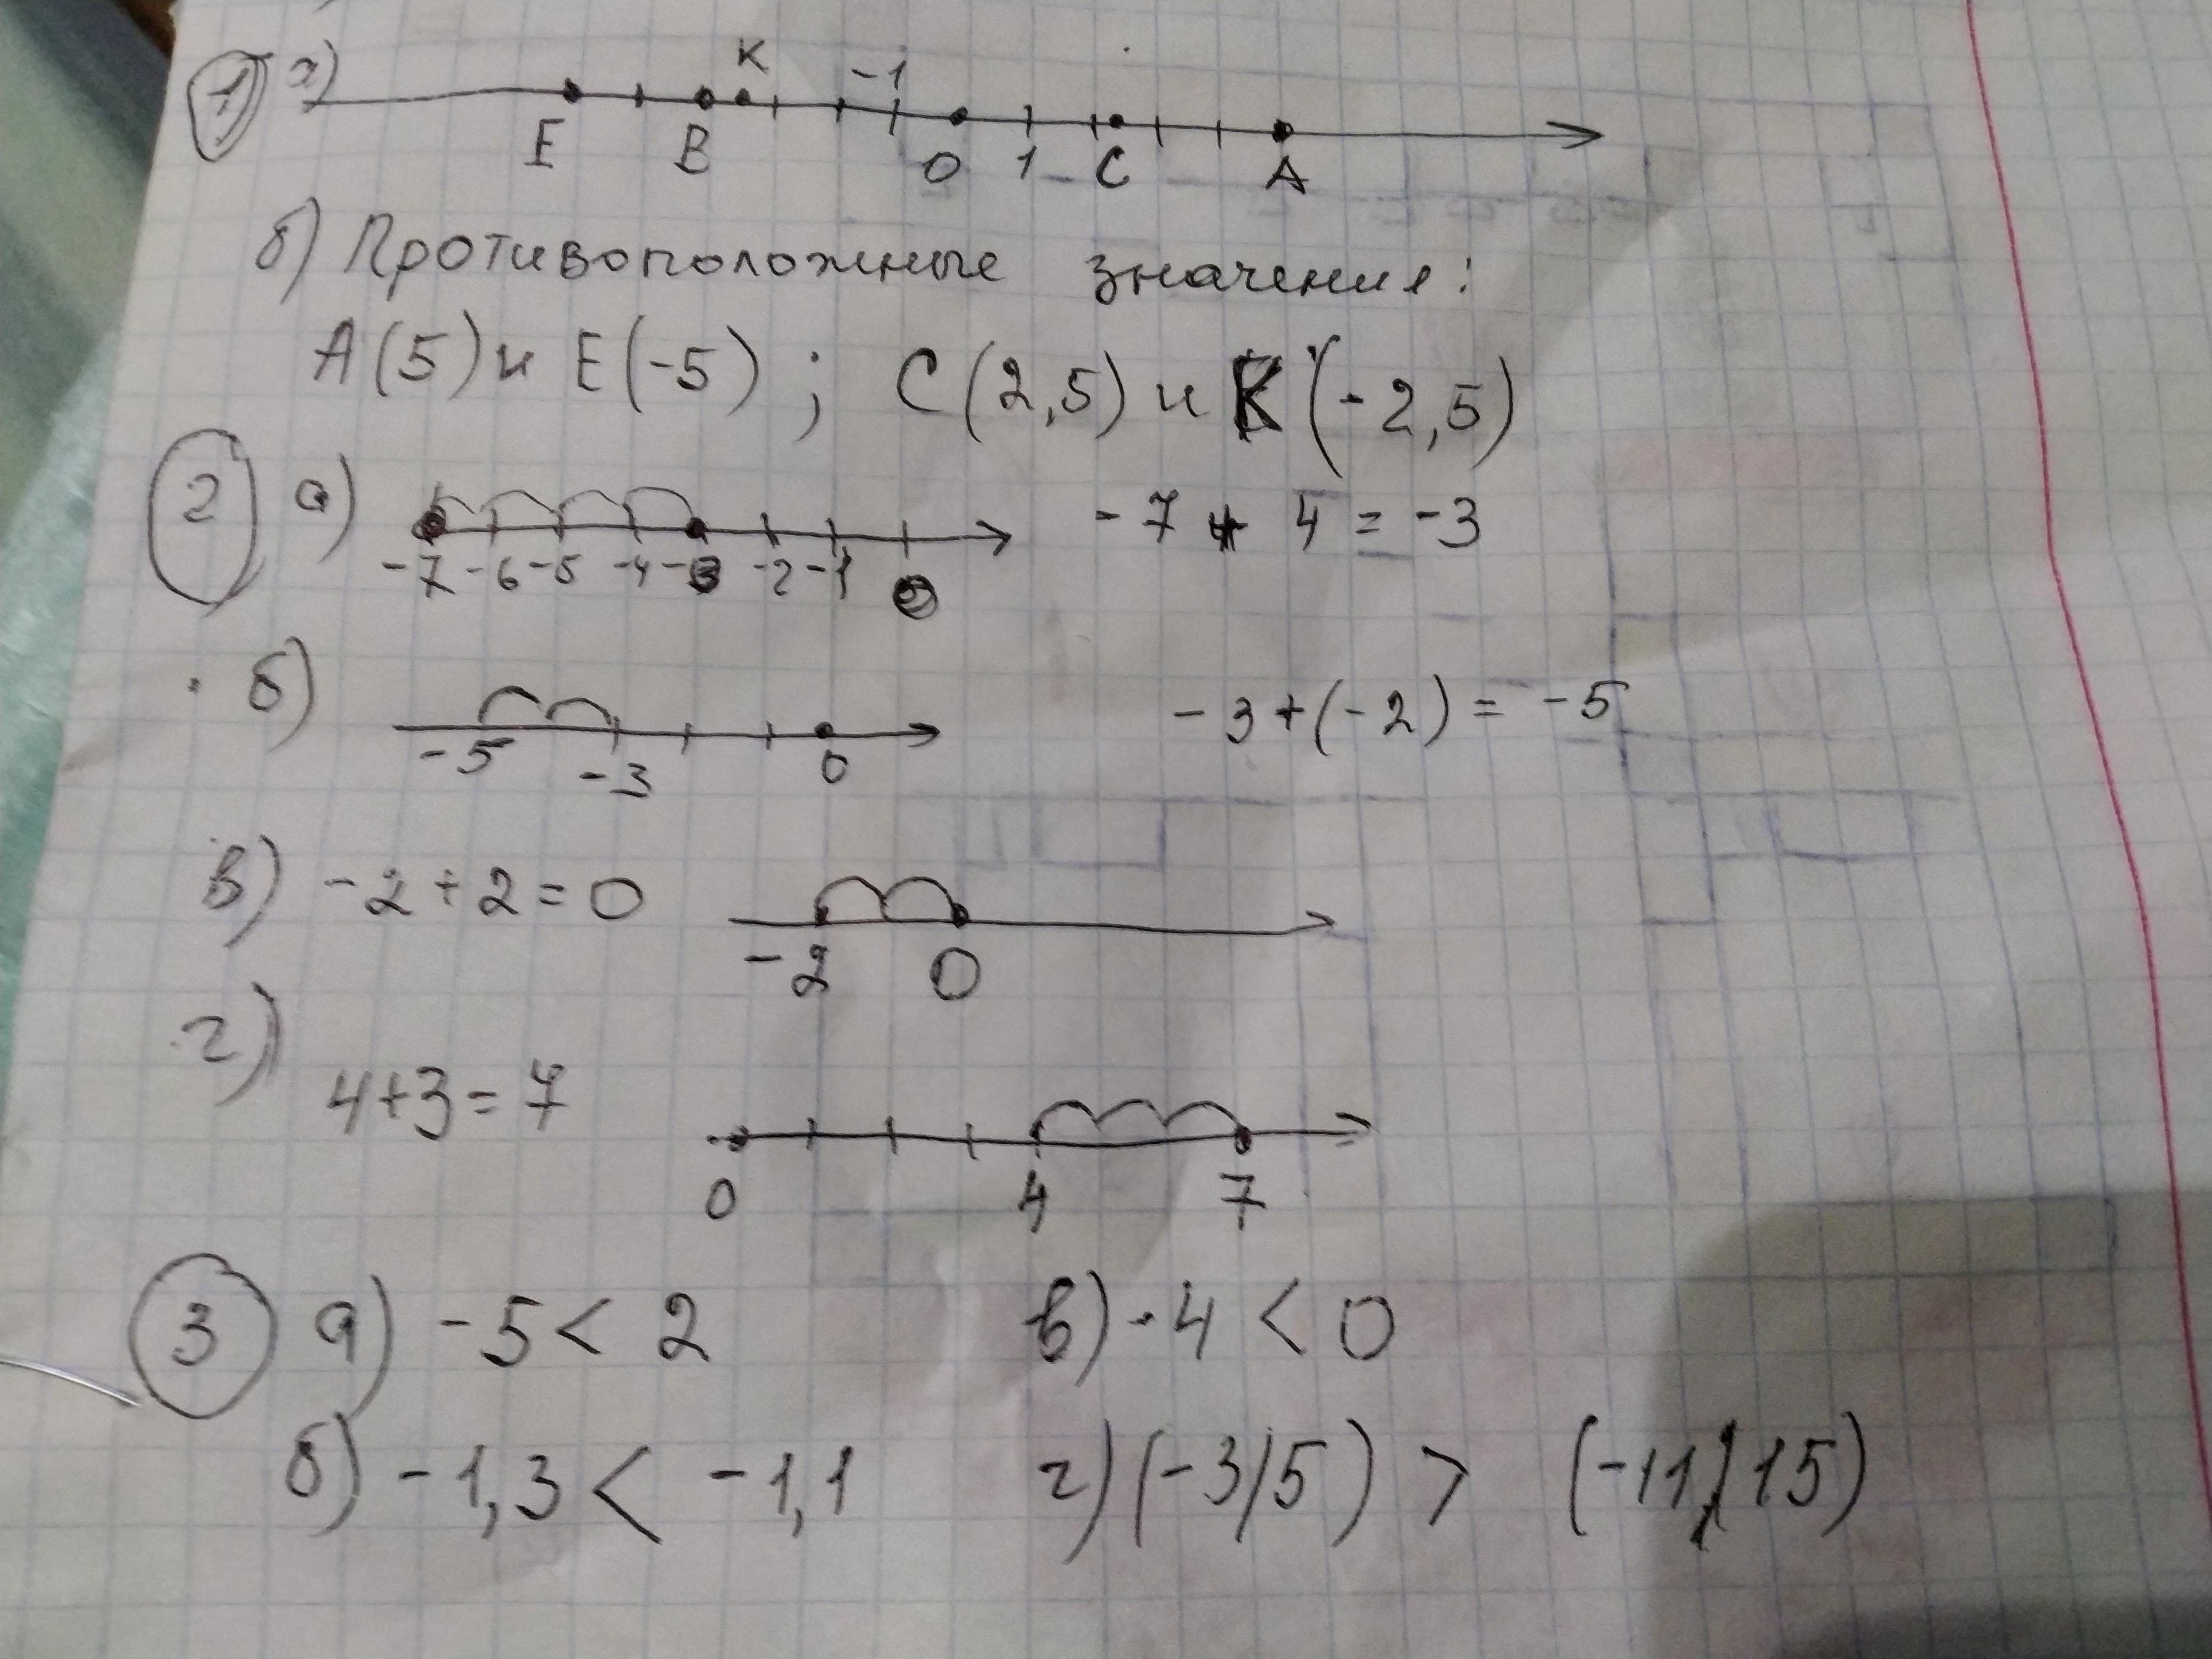 1 а)
К -1
E B 0 1 C A
б) Противоположные значения:
A(5) и E(-5) ; C(2,5) и K(-2,5)
2 а) -7 + 4 = -3
-7 -6 -5 -4 -3 -2 -1 0
б) -3+(-2) = -5
-5 -3 0
в) -2+2=0
-2 0
г)
4+3=7
0 4 7
3 а) -5 < 2 в) -4 < 0
б) -1,3 < -1,1 г) (-3/5) > (-11/15)